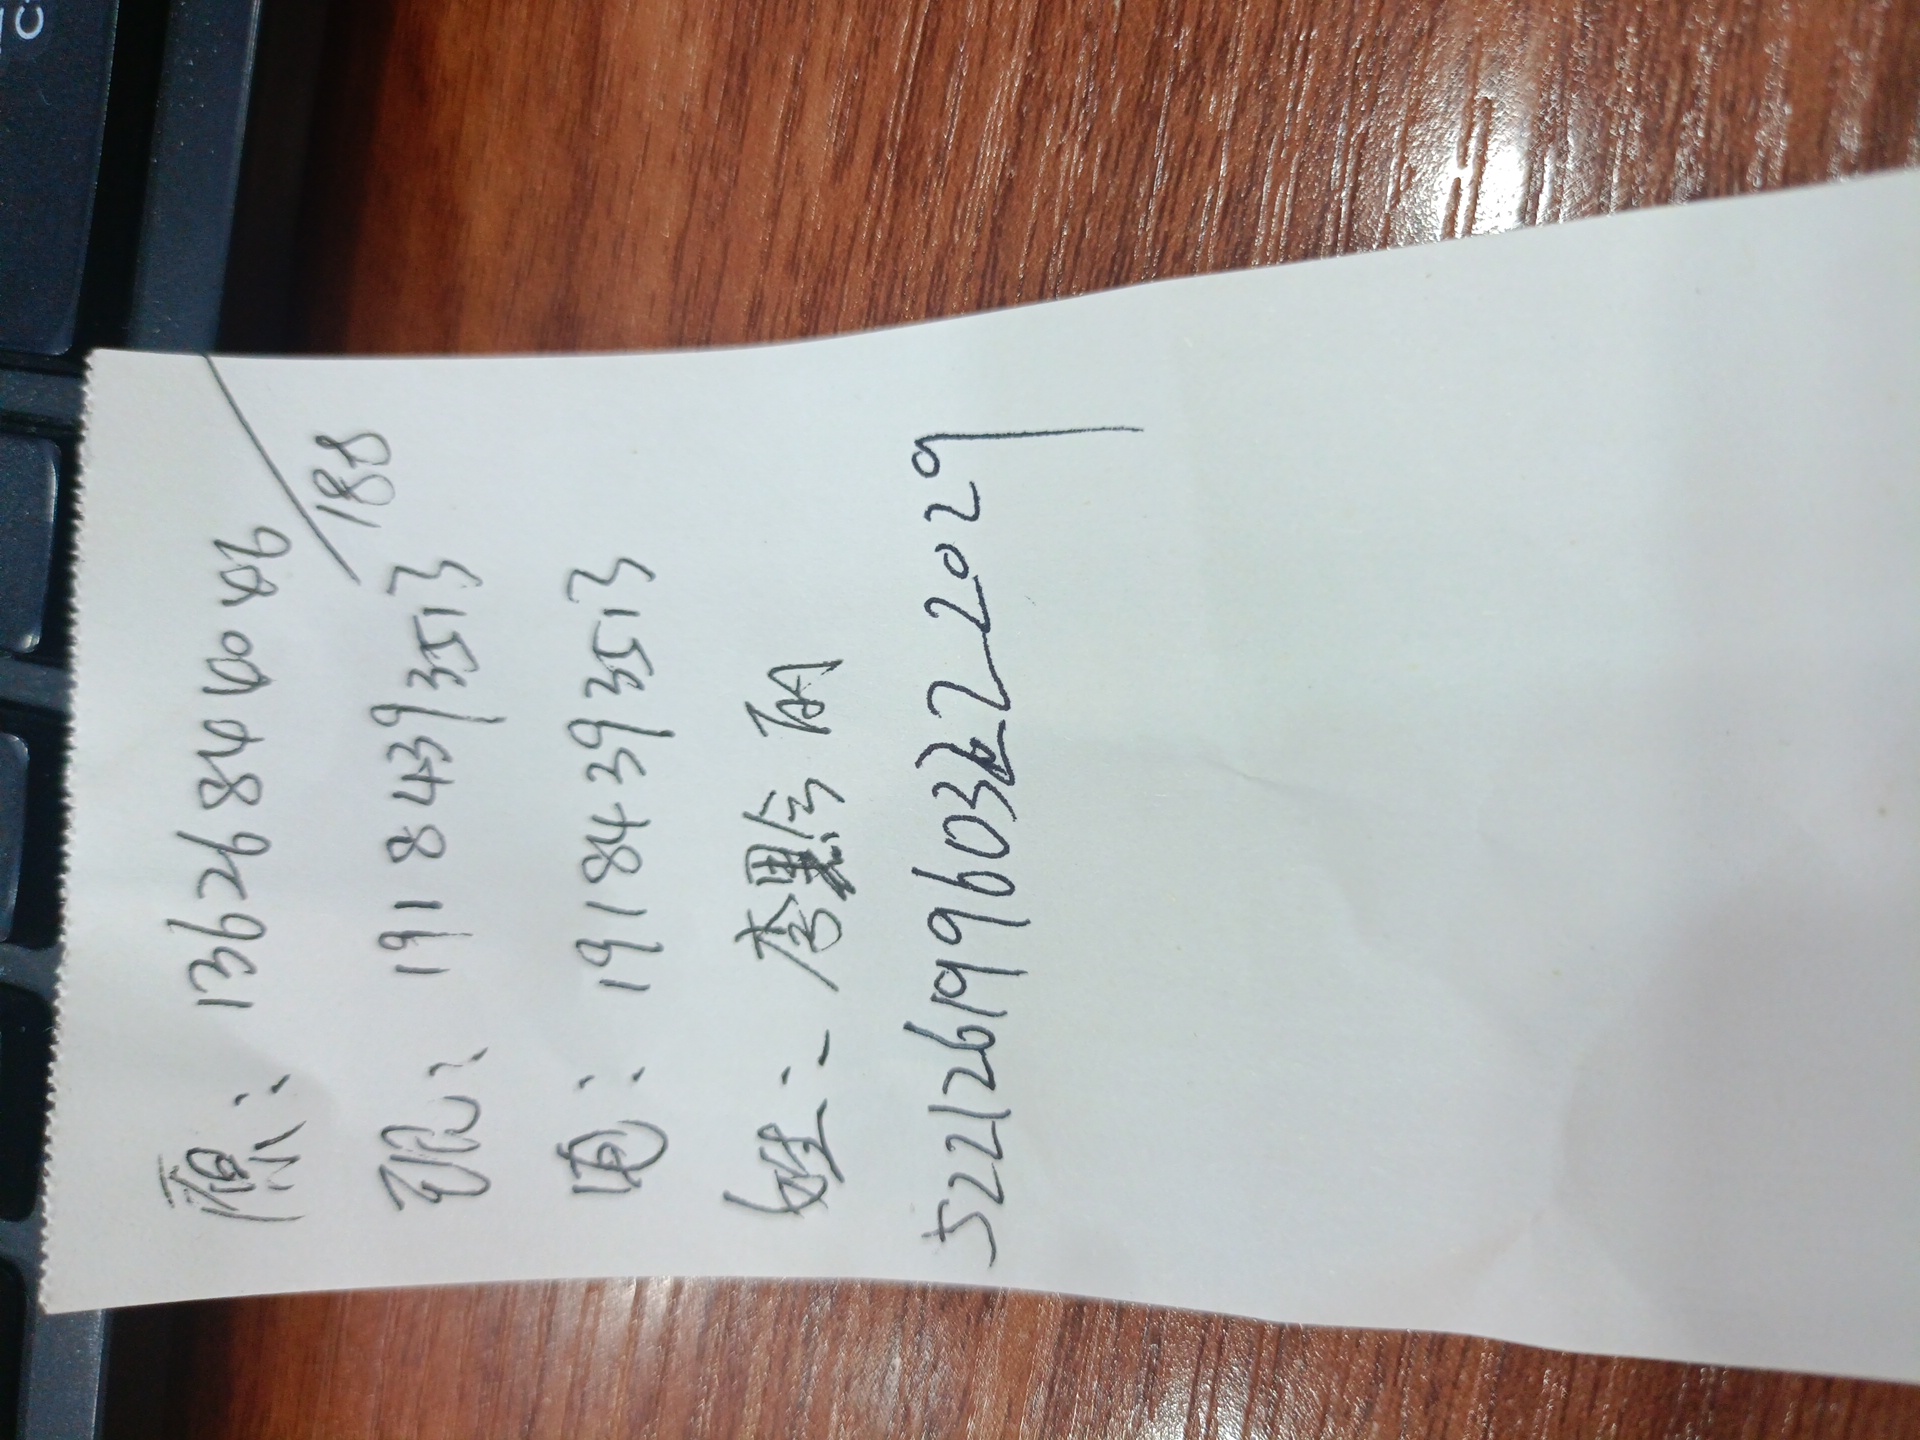 原: 13626840046
188
现: 19184393513
电: 19184393513
姓: 李黔雨
522126199603222029